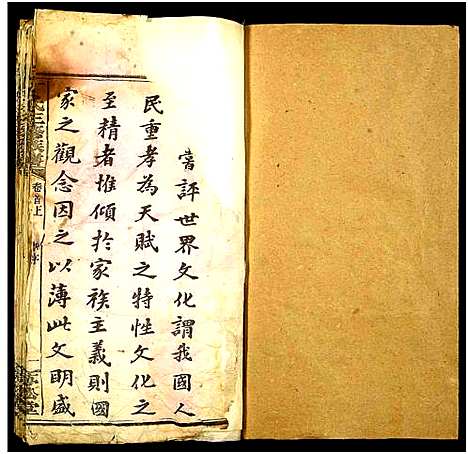 嘗評世界文化謂我國人
民重孝為天賦之特性文化之
至精者推傾於家族主義則國
家之觀念因之以薄此文明盛
卷首上